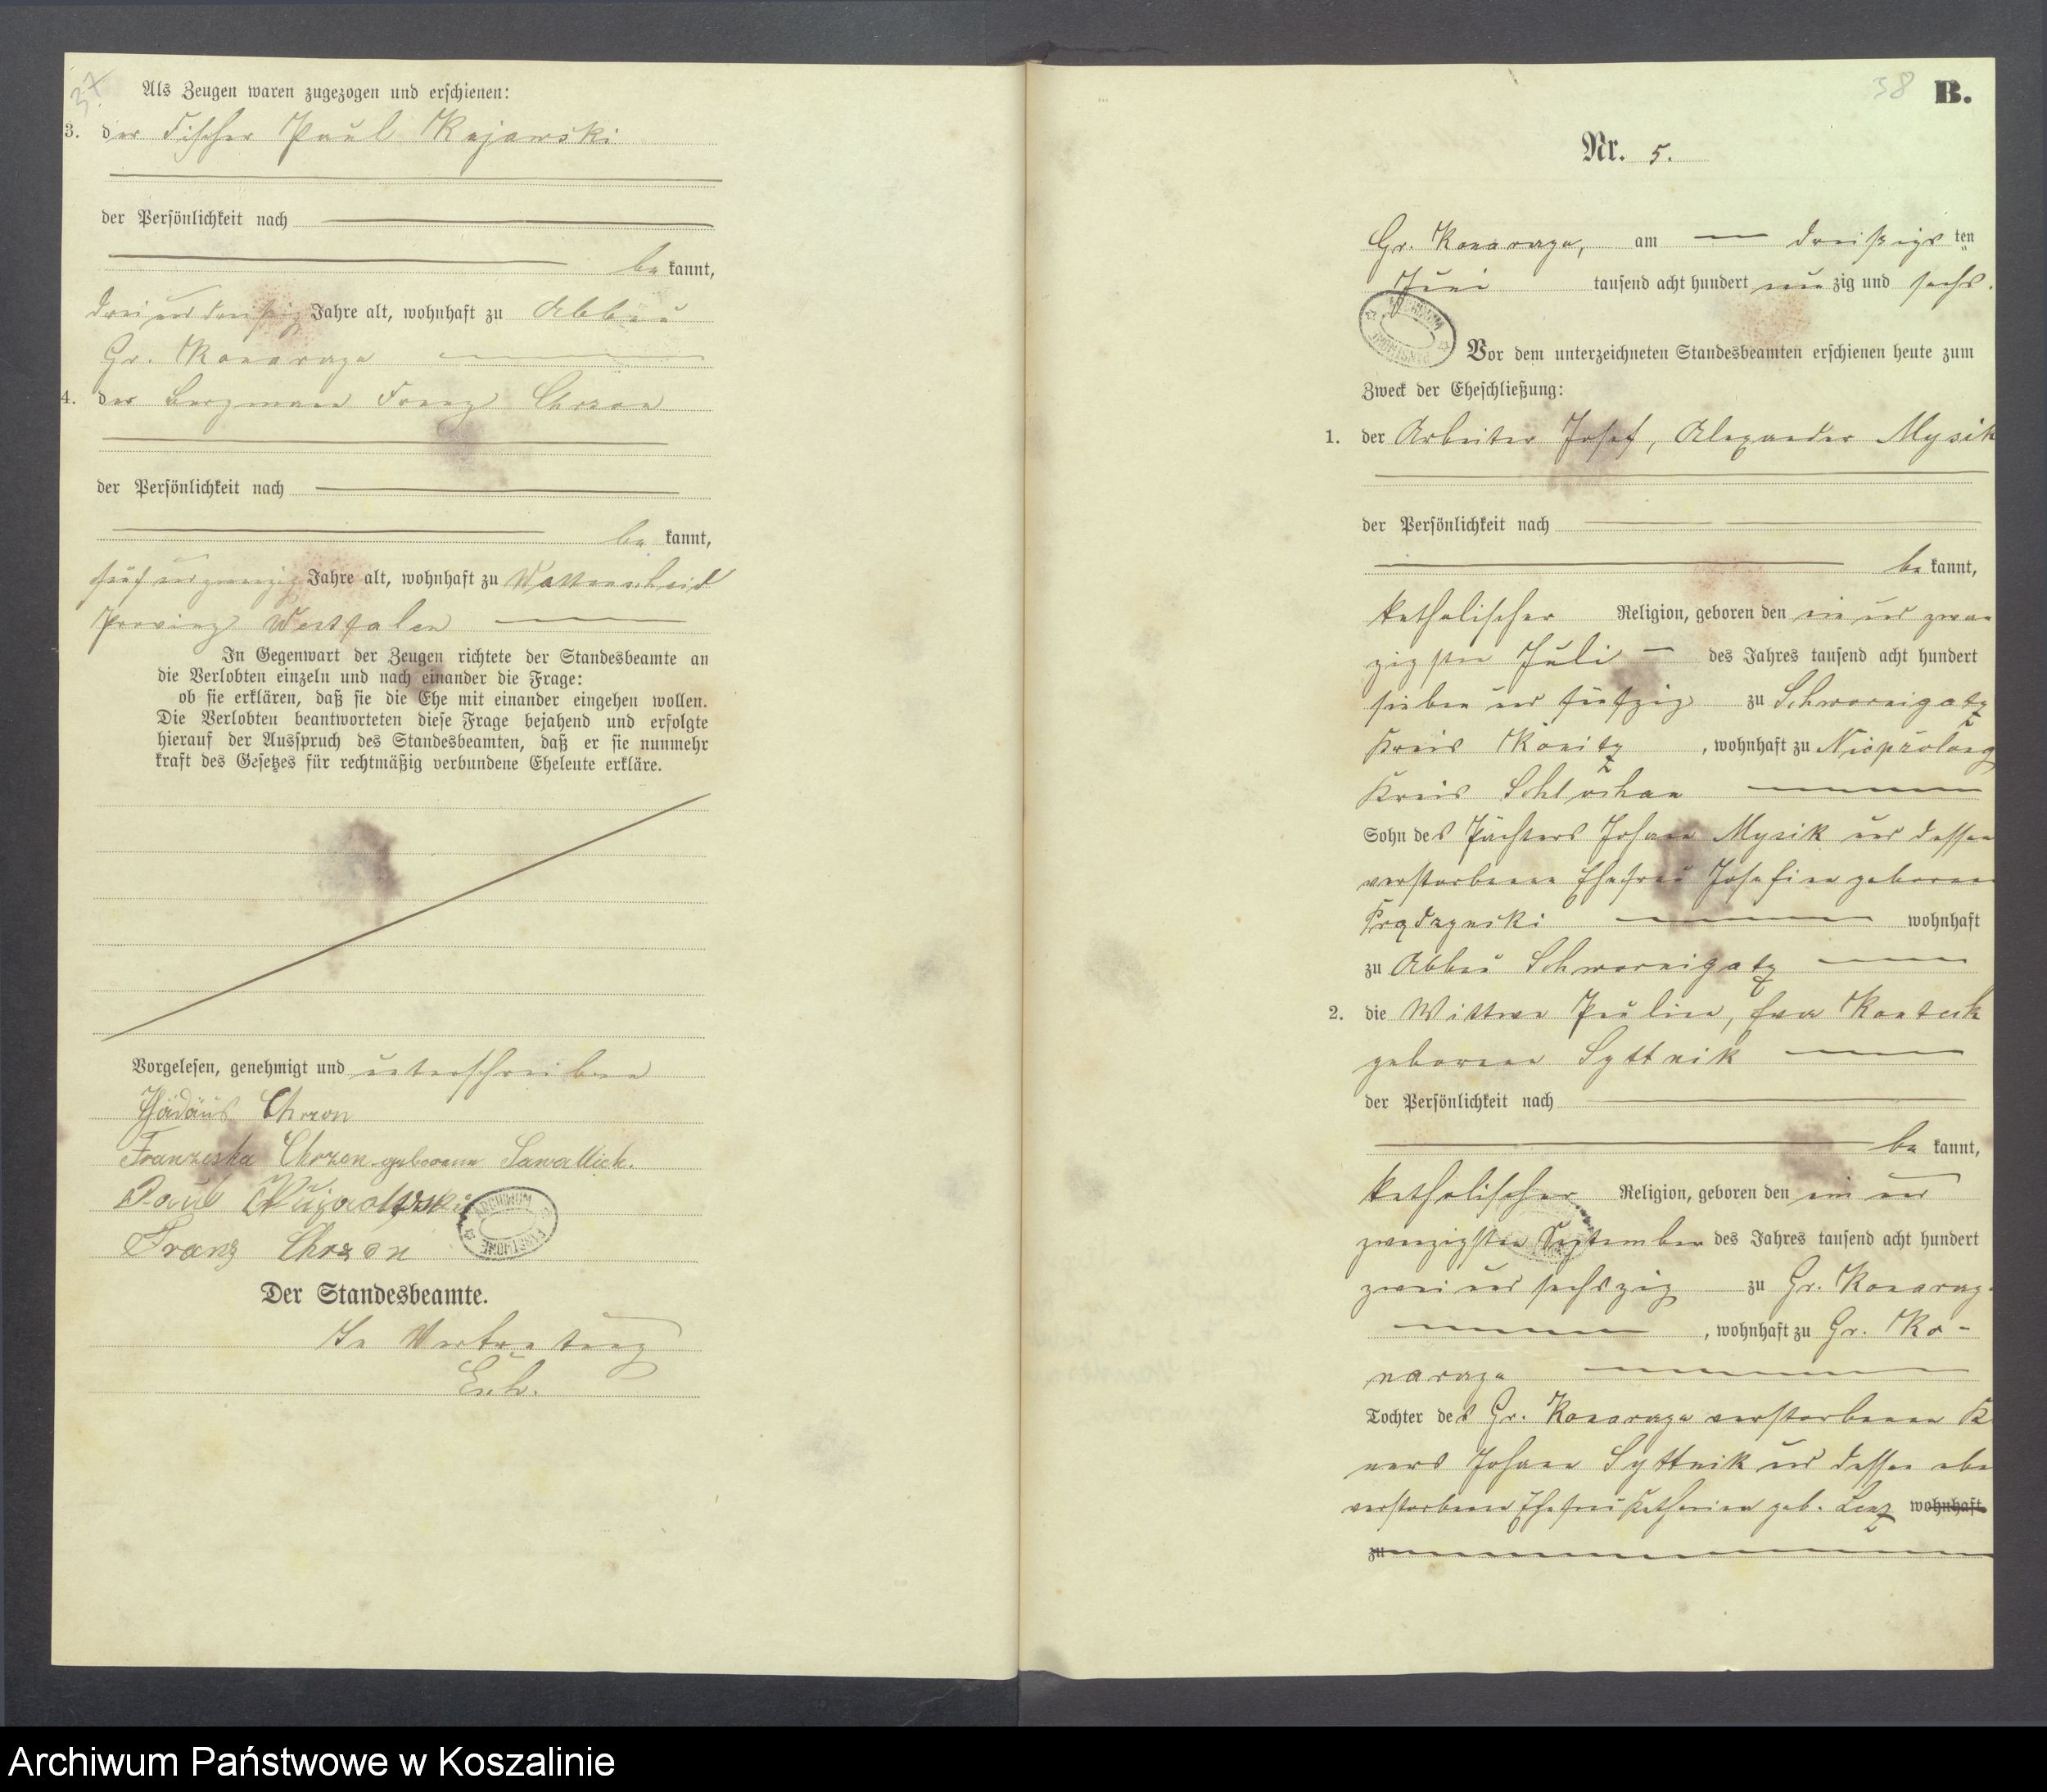 37
Als Zeugen waren zugezogen und erschienen:
3. der Fischer Paul Kujawski
der Persönlichkeit nach
be kannt,
dreiunddreißig Jahre alt, wohnhaft zu Abbau
Gr. Konarczyn
4. der Bergmann Franz Chrzon
der Persönlichkeit nach
be kannt,
fünf und zwanzig Jahre alt, wohnhaft zu Wattenscheid
Provinz Westfalen
In Gegenwart der Zeugen richtete der Standesbeamte an
die Verlobten einzeln und nach einander die Frage:
ob sie erklären, daß sie die Ehe mit einander eingehen wollen.
Die Verlobten beantworteten diese Frage bejahend und erfolgte
hierauf der Ausspruch des Standesbeamten, daß er sie nunmehr
kraft des Gesetzes für rechtmäßig verbundene Eheleute erkläre.
Vorgelesen, genehmigt und unterschrieben
Chrzon
Franzeska Chrzon geborene Sawallich.
Paul Kujawski
Franz Chrzon
Der Standesbeamte.
In Vertretung
38 B.
Nr. 5.
Gr. Konarczyn, am dreißigs ten
Juni tausend acht hundert neun zig und sechs.
Vor dem unterzeichneten Standesbeamten erschienen heute zum
Zweck der Eheschließung:
1. der Arbeiter Josef, Alexander Mysik
der Persönlichkeit nach
be kannt,
katholischer Religion, geboren den ein und zwan
zigsten Juli des Jahres tausend acht hundert
sieben und fünfzig zu Schwornigatz
Kreis Konitz, wohnhaft zu
Kreis Schlochau
Sohn des Pächters Johann Mysik und dessen
verstorbenen Ehefrau Josefine geborene
wohnhaft
zu Abbau Schwornigatz
2. die Wittwe Pauline, Eva Kanteck
geborene Syttnik
der Persönlichkeit nach
be kannt,
katholischer Religion, geboren den ein und
zwanzigsten September des Jahres tausend acht hundert
zwei und sechszig zu Gr. Konarczyn
, wohnhaft zu Gr. Ko-
narczyn
Tochter des Gr. Konarczyn verstorbenen
Johann Syttnik und dessen
verstorbenen Ehefrau Katharina geb. Lenz wohnhaft
zu
Archiwum Państwowe w Koszalinie